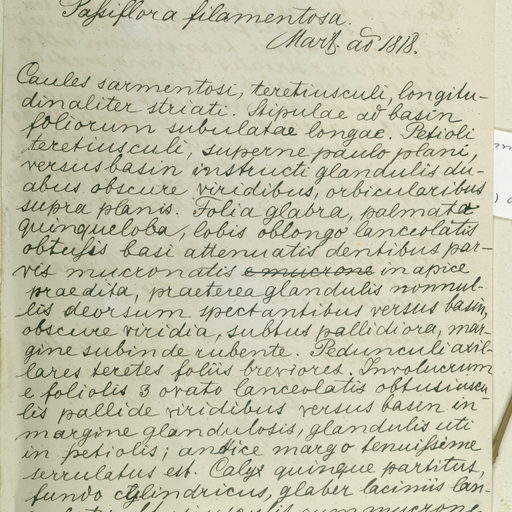 Passiflora filamentosa.
Mart. ad 1818.
Caules sarmentosi, teretiusculi, longitu-
dinaliter striati. Stipulae ad basin
foliorum subulatae longae. Petioli
teretiusculi, superne paulo plani,
versus basin instructi glandulis du-
abus obscure viridibus, orbicularibus
supra planis. Folia glabra, palmata
quinqueloba, lobis oblongo lanceolatis
obtusis basi attenuatis dentibus par-
vis mucronatis e mucrone in apice
praedita, praeterea glandulis nonnul-
lis deorsum spectantibus versus basin,
obscure viridia, subtus pallidiora, mar-
gine subinde rubente. Pedunculi axil-
lares teretes foliis breviores. Involucrum
e foliolis 3 ovato lanceolatis obtusiuscu
lis pallide viridibus versus basin in
margine glandulosis, glandulis uti
in petiolis; antice margo tenuissime
serrulatus est. Calyx quinque partitus,
fundo cylindricus, glaber laciniis lan-